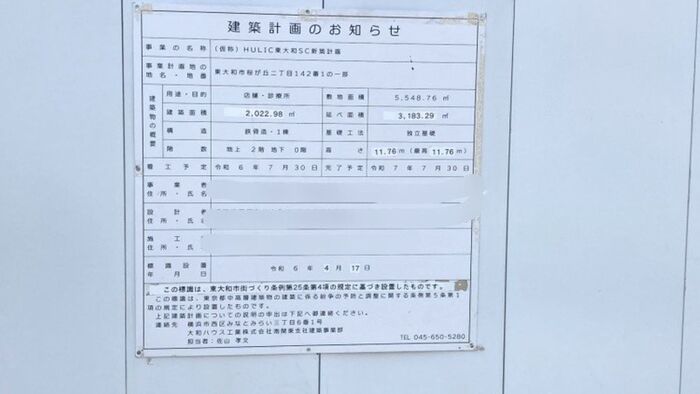 建築計画のお知らせ
事業の名称 (仮称)HULIC東大和SC新築計画
事業計画地の地名・地番 東大和市桜が丘二丁目142番1の一部
建築物の概要
用途・目的 店舗・診療所 敷地面積 5,548.76 ㎡
建築面積 2,022.98 ㎡ 延べ面積 3,183.29 ㎡
構造 鉄骨造・1棟 基礎工法 独立基礎
階数 地上 2階 地下 0階 高さ 11.76 m (最高 11.76 m)
着工予定 令和 6年 7月 30日 完了予定 令和 7年 7月 30日
事業者
住所・氏名
設計者
住所・氏名
施工
住所・氏
標識設置年月日 令和 6年 4月 17日
この標識は、東大和市街づくり条例第25条第4項の規定に基づき設置したものです。
この標識は、東京都中高層建築物の建築に係る紛争の予防と調整に関する条例第5条第1
項の規定により設置したものです。
上記建築計画についての説明の申出は下記へ御連絡ください。
連絡先 横浜市西区みなとみらい三丁目6番1号
大和ハウス工業株式会社南関東支社建築事業部
担当者:佐山 孝文 TEL 045-650-5280